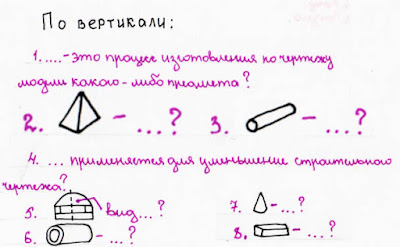 По вертикали:
1. .... - это процесс изготовления по чертежу
модели какого-либо предмета?
2. - ...? 3. - ...?
4. ... применяется для уменьшение строительного
чертежа?
5. вид...? 7. - ...?
6. - ...? 8. - ...?